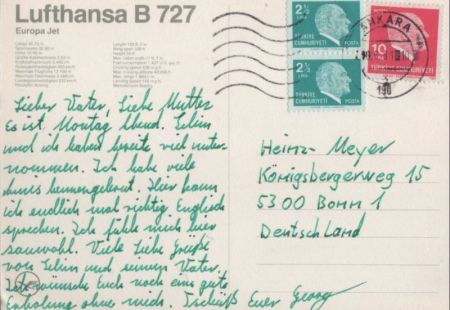 Lufthansa B 727
Europa Jet
2½
LIRA
TÜRKİYE
CUMHURİYETİ
2½
LIRA
TÜRKİYE
CUMHURİYETİ
10
TÜRKİYE CUMHURİYETİ
ANKARA
Lieber Vater, Liebe Mutter
Es ist Montag Abend. Selim
und ich haben bereits viel unter-
nommen. Ich habe viele
kennengelernt. Hier kann
ich endlich mal richtig Englisch
sprechen. Ich fühle mich hier
sauwohl. Viele Liebe Grüße
von Selim und seinem Vater.
Ich wünsche Euch noch eine gute
Erholung ohne mich. Tschüß Euer Georg
Heinz Meyer
Königsbergerweg 15
5300 Bonn 1
Deutschland